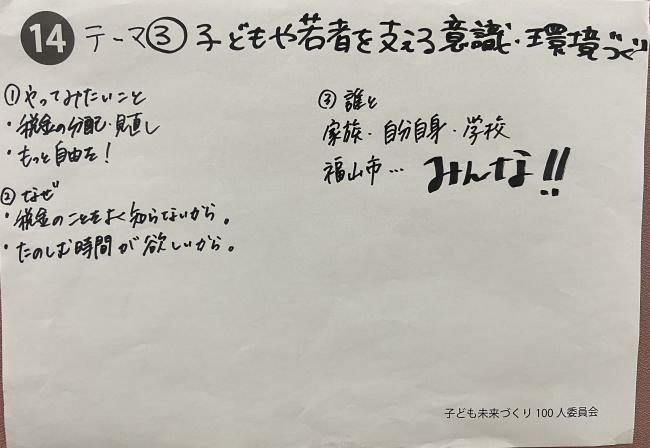 14 テーマ③ 子どもや若者を支える意識・環境づくり
①やってみたいこと
・税金の分配・見直し
・もっと自由を!
②なぜ
・税金のことをよく知らないから。
・たのしむ時間が欲しいから。
③誰と
家族・自分自身・学校
福山市… みんな!!
子ども未来づくり100人委員会